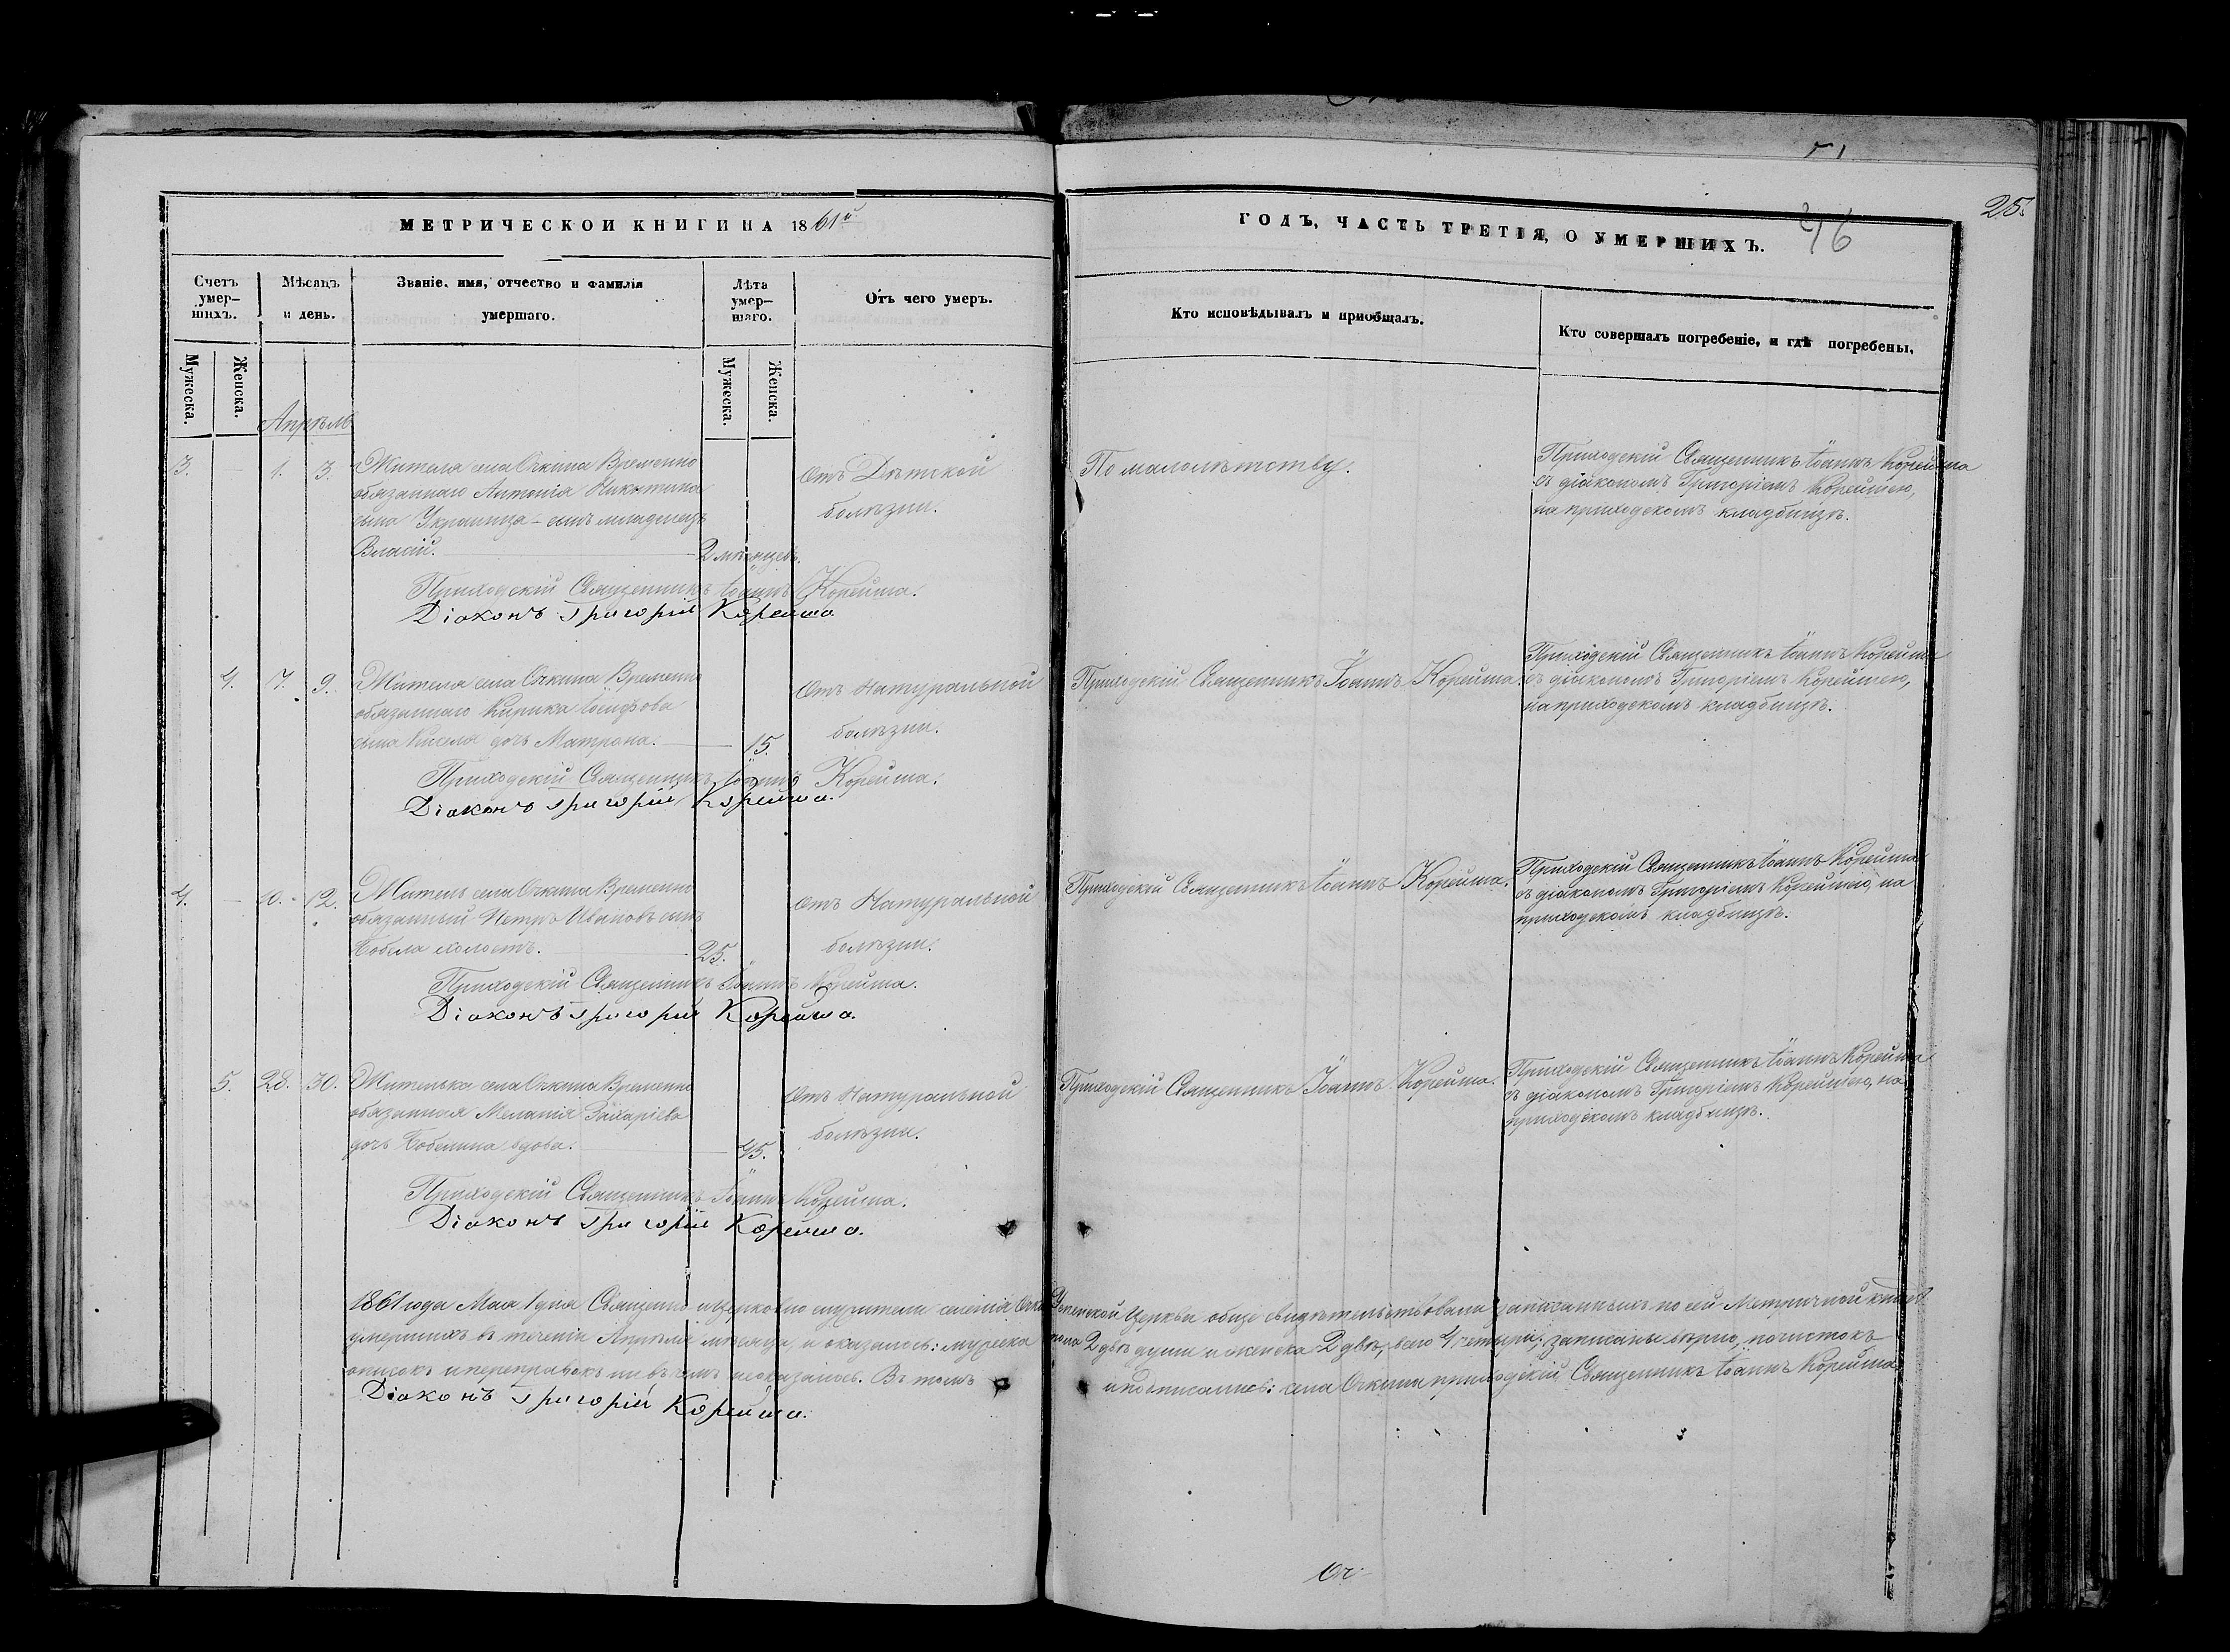 25.
46
МЕТРИЧЕСКОЙ КНИГИ НА 1861й
ГОДЪ, ЧАСТЬ ТРЕТІЯ, О УМЕРШИХЪ.
Счетъ умер-шихъ.
Мѣсяцъ и день.
Званіе, имя, отчество и фамилія умершаго.
Лѣта умер-шаго.
Отъ чего умеръ.
Кто исповѣдывалъ и пріобщалъ.
Кто совершалъ погребеніе, и гдѣ погребены.
Мужеска. Женска.
Мужеска. Женска.
Апрѣль
3. 1. 3. Жителя села Очкина Временно
обязаннаго Антонія Никитина
сына Украинца – сынъ младенецъ
Власій. 2 мѣсяцевъ.
отъ Дѣтской
болѣзни.
По малолѣтству.
Приходскій Священникъ Іоаннъ Корейша
съ діакономъ Григоріемъ Корейшею,
на приходскомъ кладбищѣ.
Приходскій Священникъ Іоаннъ Корейша.
Діаконъ Григорій Корейша
4. 7. 9. Жителя села Очкина Временно
обязаннаго Кирика Іосифова
сына Киселя дочь Матрона. 15.
Отъ Натуральной
болѣзни.
Приходскій Священникъ Іоаннъ Корейша.
Приходскій Священникъ Іоаннъ Корейша
съ діакономъ Григоріемъ Корейшею,
на приходскомъ кладбищѣ.
Приходскій Священникъ Іоаннъ Корейша.
Діаконъ Григорій Корейша.
4. 10. 12. Житель села Очкина Временно
обязанный Петръ Ивановъ сынъ
Кобела холостъ. 25.
отъ Натуральной
болѣзни.
Приходскій Священникъ Іоаннъ Корейша.
Приходскій Священникъ Іоаннъ Корейша
съ діакономъ Григоріемъ Корейшею, на
приходскомъ кладбищѣ.
Приходскій Священникъ Іоаннъ Корейша.
Діаконъ Григорій Корейша.
5. 28. 30. Жителька села Очкина Временно
обязанная Меланія Захаріева
дочь вдова. 45.
Отъ Натуральной
болѣзни.
Приходскій Священникъ Іоаннъ Корейша.
Приходскій Священникъ Іоаннъ Корейша
съ діакономъ Григоріемъ Корейшею, на
приходскомъ кладбищѣ.
Приходскій Священникъ Іоаннъ Корейша.
Діаконъ Григорій Корейша.
1861 года Мая 1 дня Священно и церковно служители селенія Успенской Церкви обще свидѣтельствовали записанныхъ по сей Метричной книгѣ
умершихъ въ теченіи Апрѣля мѣсяца, и оказалось: мужеска пола 2 двѣ души и женска 2 двѣ, всего 4 четыре; записаны вѣрно, почистокъ
описокъ и переправокъ ни въ чемъ не оказалось. Въ томъ и подписались: села Очкина приходскій Священникъ Іоаннъ Корейша
Діаконъ Григорій Корейша.